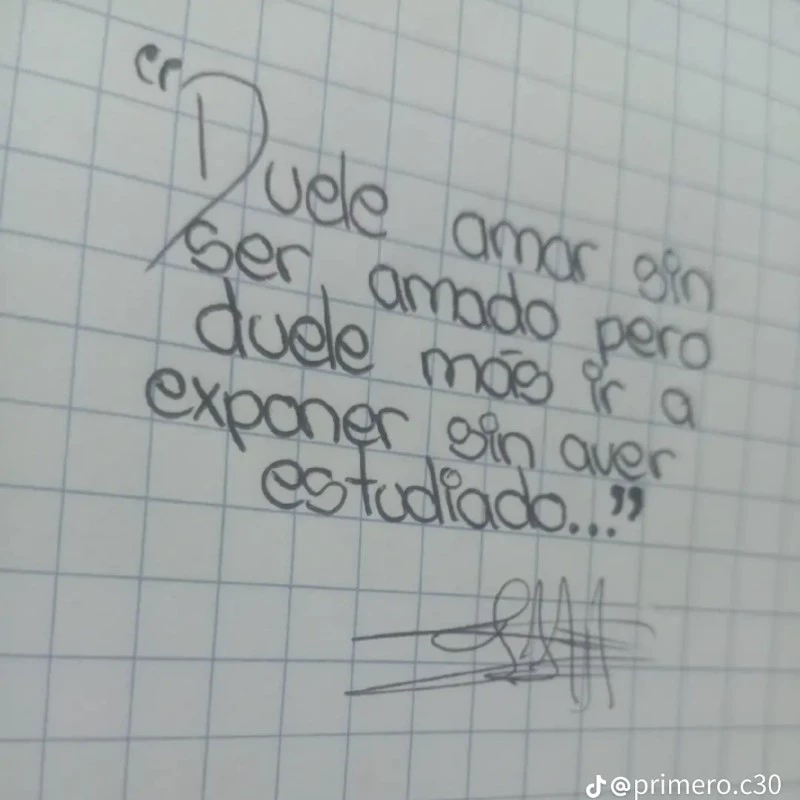 “Duele amar sin
ser amado pero
duele más ir a
exponer sin aver
estudiado...”
@primero.c30